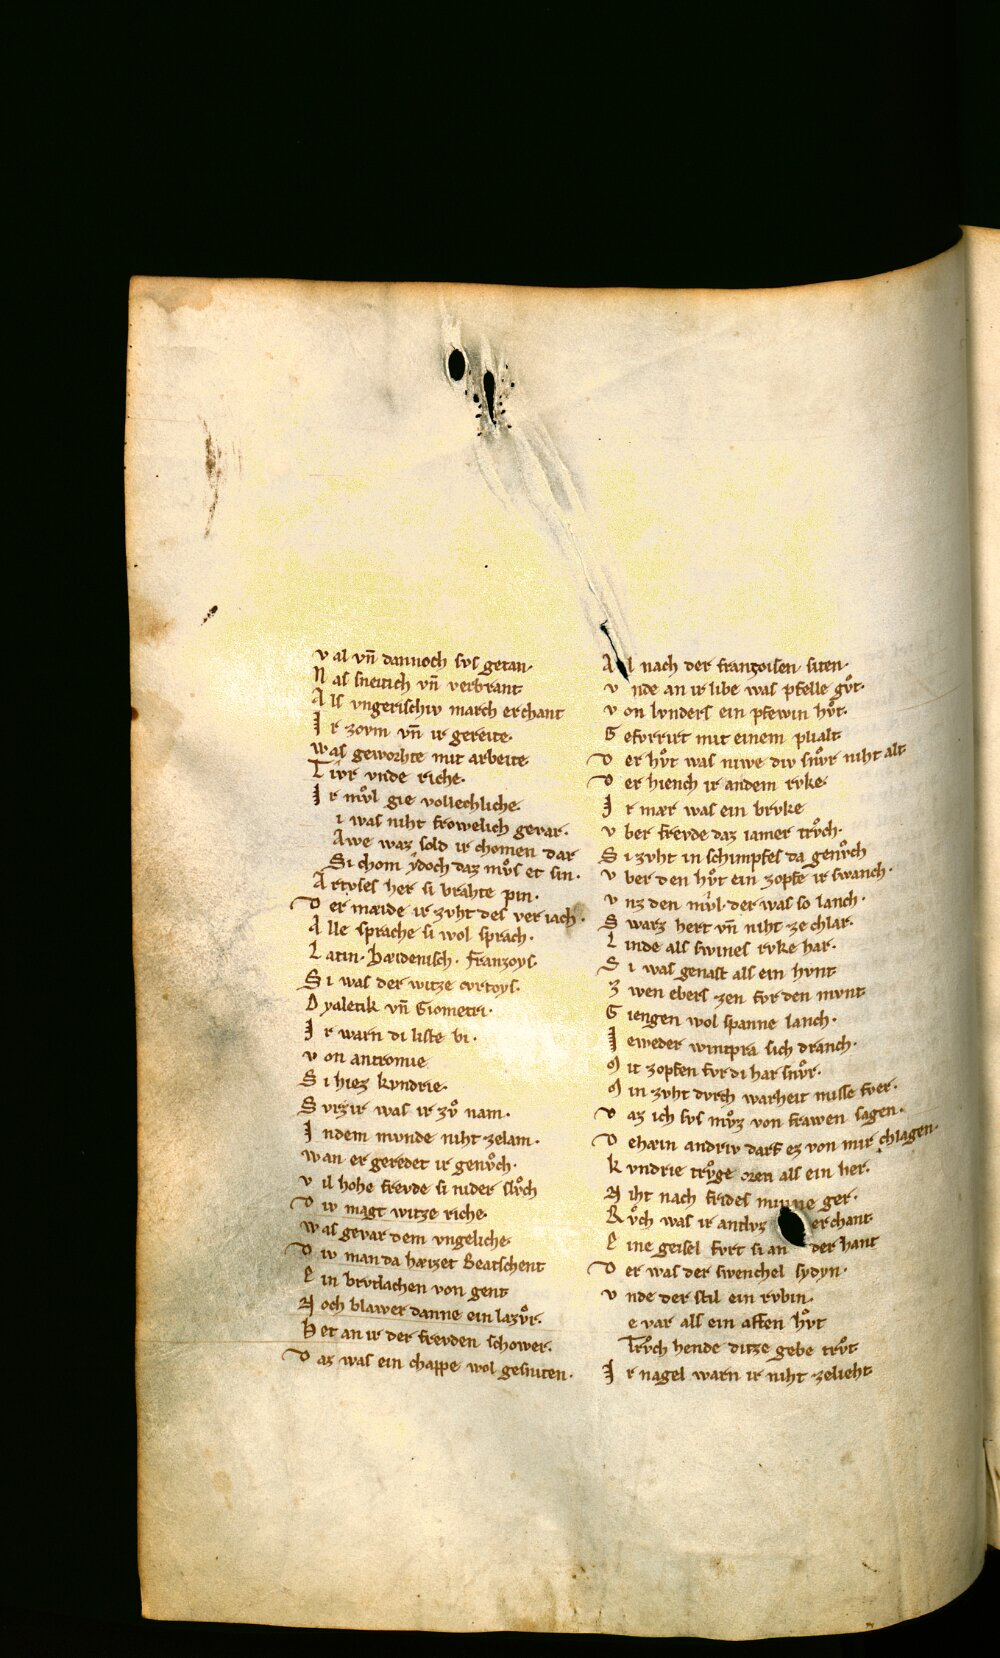 v al vn̄ dannoch svs getan·
N as sneitich vn̄ verbrant
A ls vngerischiv march erchant
I r zovm vn̄ ir gereite·
w as geworhte mit arbeite
T iwr vnde riche·
I r mv̊l gie vollechliche·
i was niht frowelich gevar·
Awe waz sold ir chomen dar
Si chom ẏdoch daz mv̊s et sin·
A rtvses her si brahte pin·
D er mæide ir zvht des veriach·
A lle sprache si wol sprach·
L atin· Hæidenisch· franzoys·
S i was der witze cvrtoys·
D yaletik vn̄ Giometri·
I r warn di liste bi·
v on antromie
S i hiez kvndrie·
S vrzir was ir zv̊ nam·
I ndem mvnde niht zelam·
w an er geredet ir genv̊ch·
v il hohe frevde si nider slv̊ch
D iv magt witze riche·
w as gevar dem vngeliche·
D iv man da hæizet Beatschent
E in brvtlachen von gent
N och blawer danne ein lazv̊r·
H et an ir der frevden schower·
D az was ein chappe wol gesniten·
A l nach der franzoisen siten·
v nde an ir libe was pfelle gv̊t·
v on lvnders ein pfewin hv̊t·
G efvrrirt mit einem plialt
D er hv̊t was niwe div snv̊r niht alt
D er hiench ir andem rvke·
I r mær was ein brvke
v ber frevde daz iamer trv̊ch·
S i zvht in schimpfes da genv̊ch
v ber den hv̊t ein zopfe ir swanch·
v nz den mv̊l· der was so lanch·
S warz hert vn̄ niht ze chlar·
L inde als swines rvke har·
S i was genast als ein hvnt
Z wen ebers zen fvr den mvnt
G iengen wol spanne lanch·
I eweder wintpra sich dranch·
M it zopfen fvr di har snv̊r·
M in zvht dvrch warheit misse fver·
D az ich svs mv̊z von frawen sagen·
D ehæin andriv darf ez von mir chlagen·
K vndrie trv̊ge oren als ein ber·
N iht nach frides minne ger·
R v̊ch was ir antlvz erchant
E ine geisel fvrt si an der hant
D er was der swenchel sydyn·
v nde der stil ein rvbin·
e var als ein affen hv̊t
Trv̊ch hende ditze gebe trv̊t
I r nagel warn ir niht zelieht